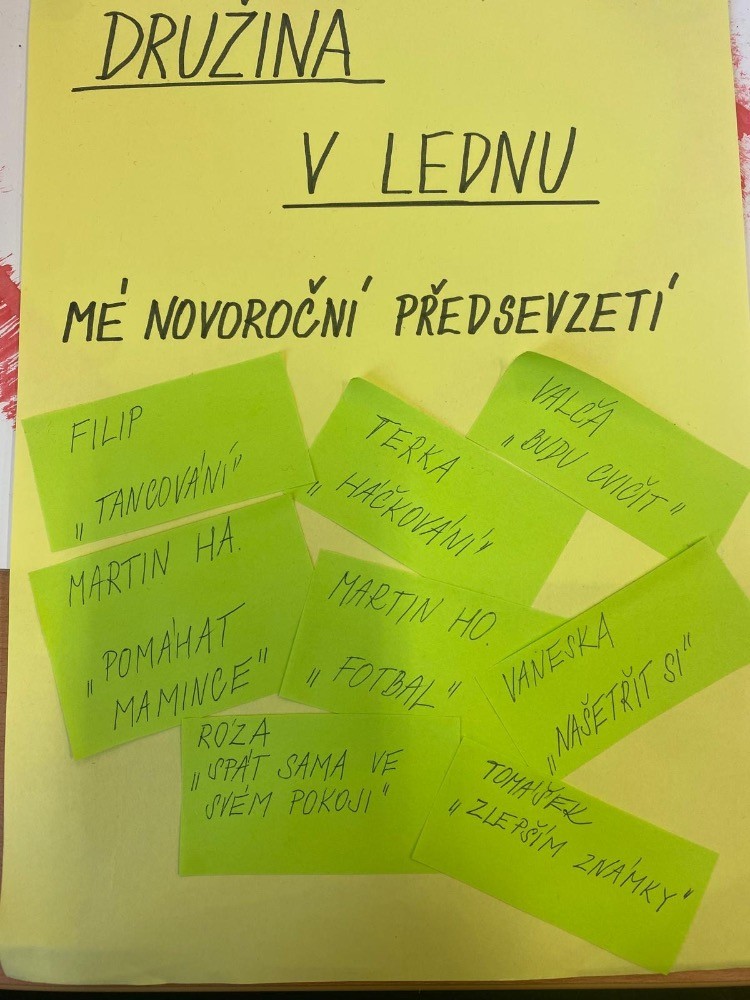 DRUŽINA
V LEDNU
MÉ NOVOROČNÍ PŘEDSEVZETÍ
FILIP
„TANCOVÁNÍ"
TERKA
„HÁČKOVÁNÍ"
VALČA
„BUDU CVIČIT"
MARTIN HA.
„POMÁHAT
MAMINCE"
MARTIN HO.
„FOTBAL"
VANESKA
„NAŠETŘIT SI"
RÓZA
„SPÁT SAMA VE
SVÉM POKOJI"
TOMÁŠEK
„ZLEPŠÍM ZNÁMKY"